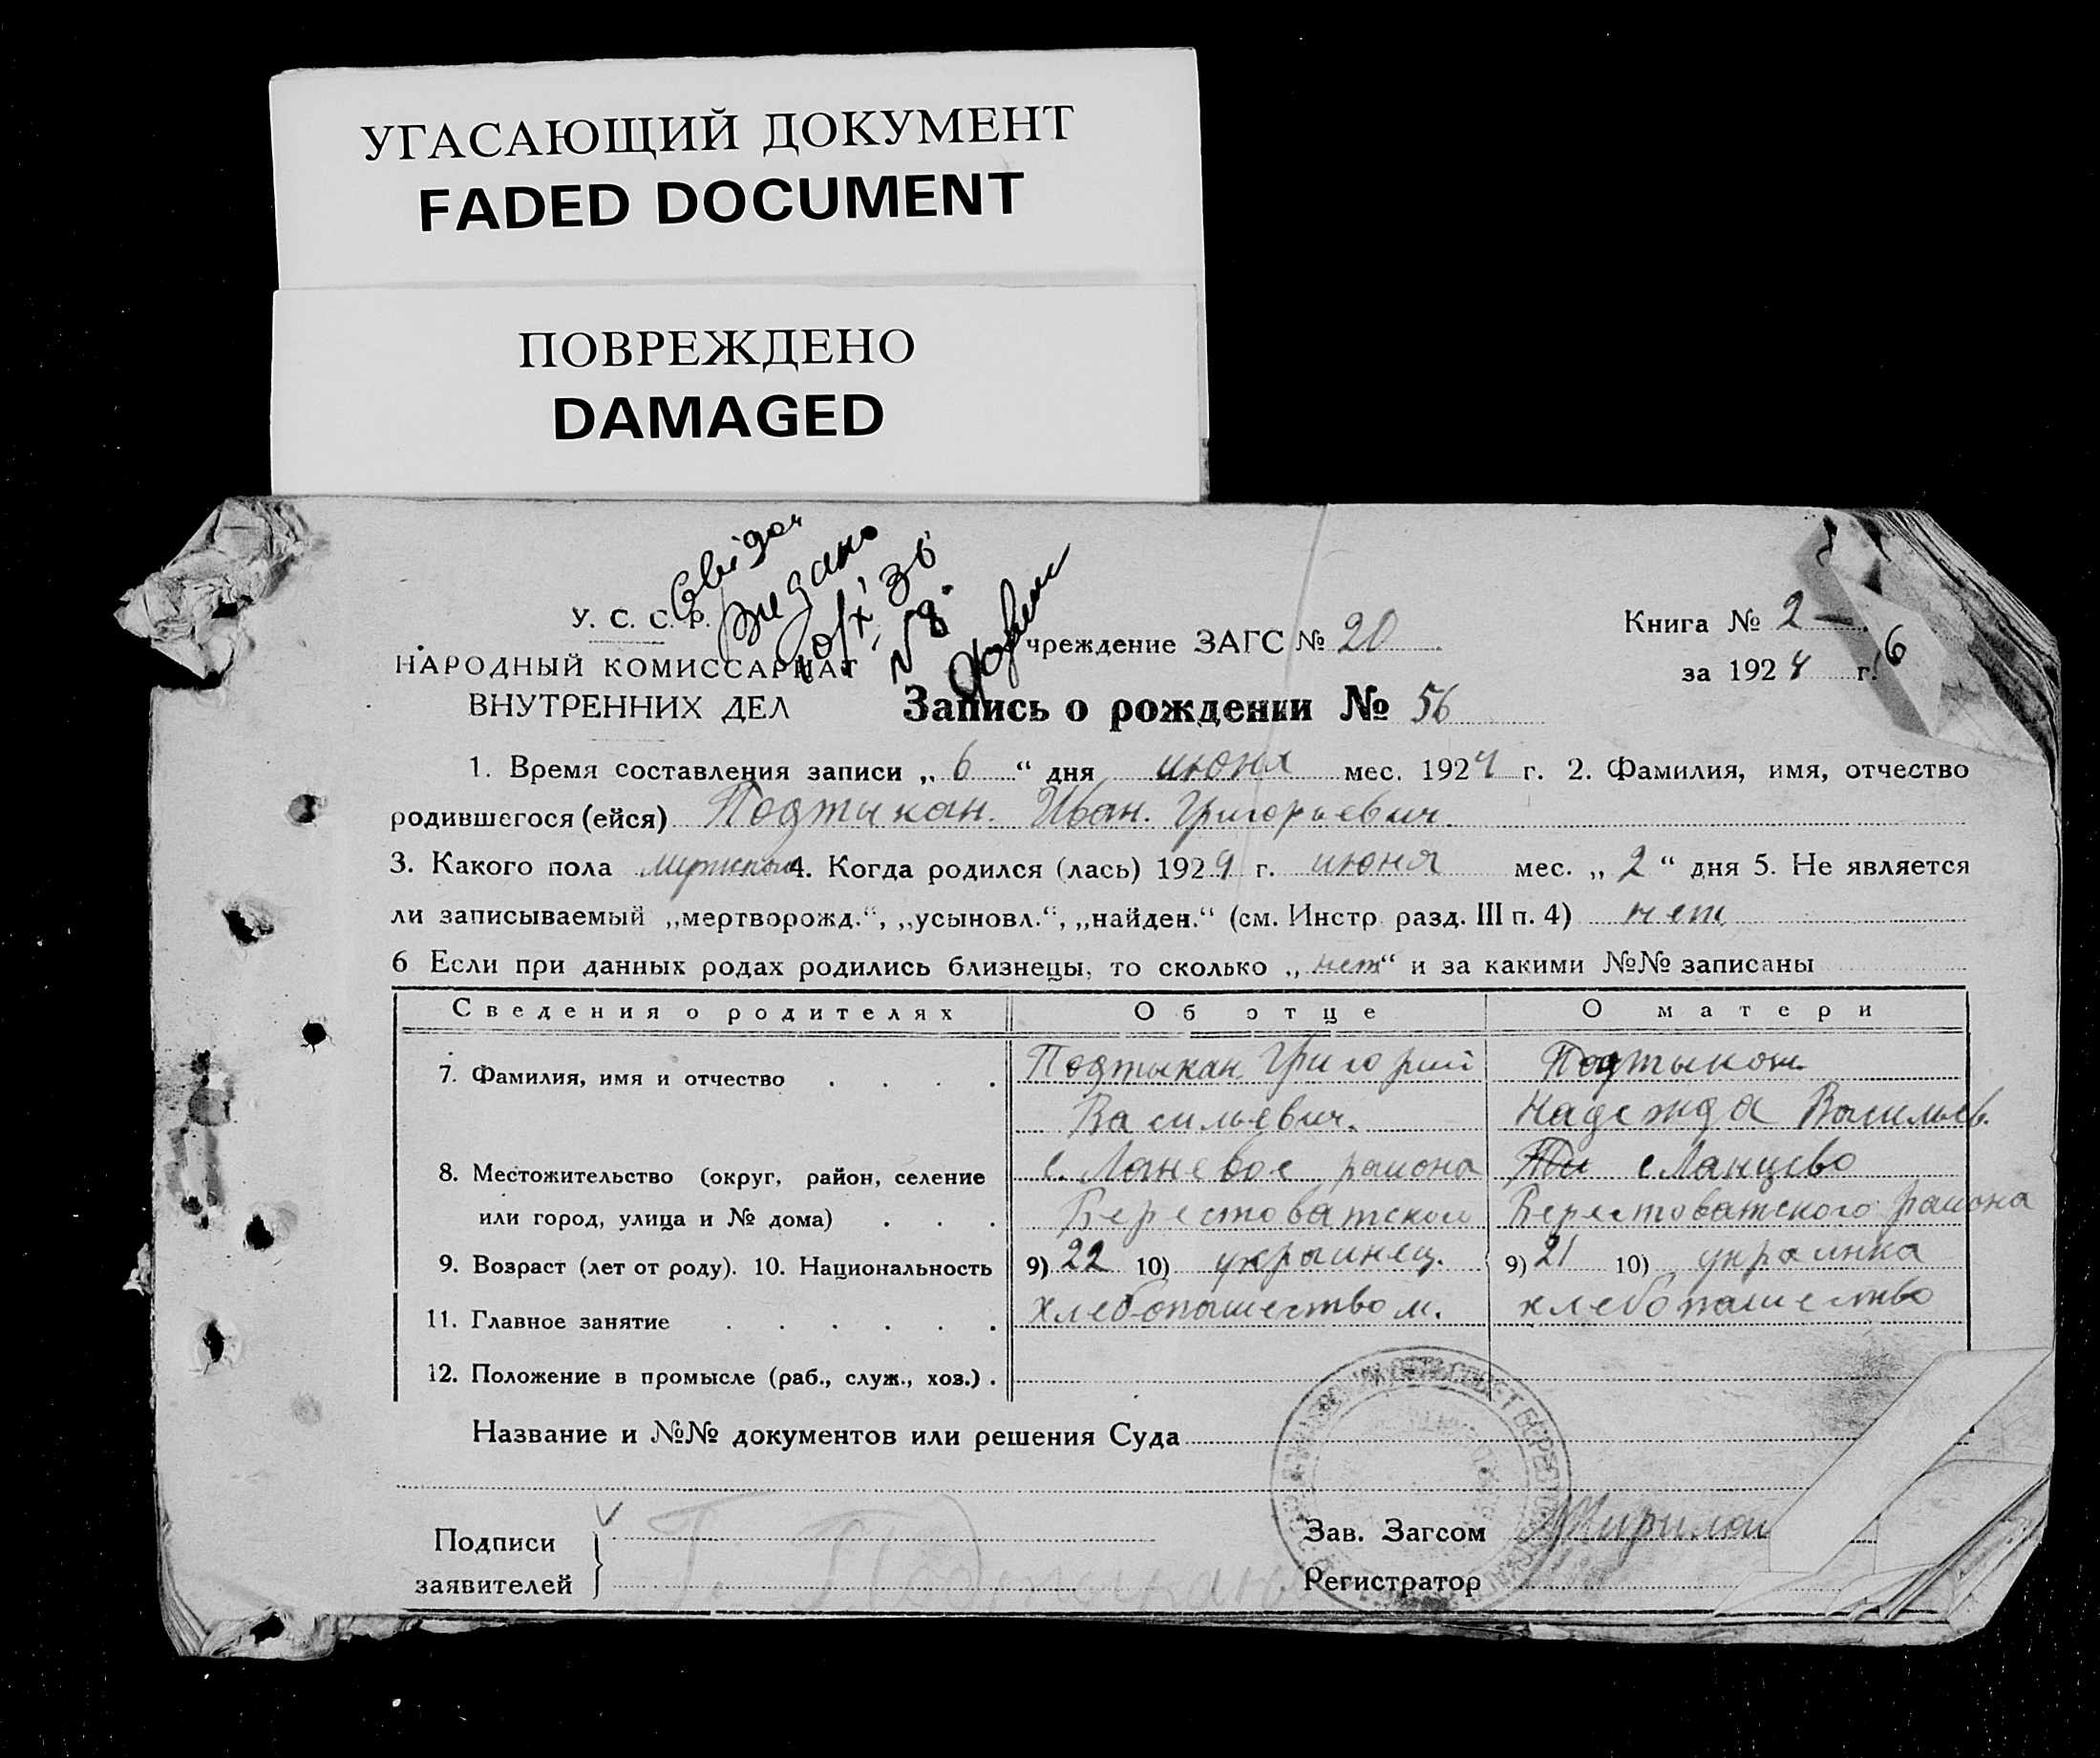 УГАСАЮЩИЙ ДОКУМЕНТ
FADED DOCUMENT
ПОВРЕЖДЕНО
DAMAGED
У. С. С. Р.
НАРОДНЫЙ КОМИССАРИАТ
ВНУТРЕННИХ ДЕЛ
Свідоц
видано
10/X 36
№ 8.
чреждение ЗАГС № 20
Книга № 2
за 1924 г. 6
Запись о рождении № 56
1. Время составления записи „ 6 “ дня июня мес. 1924 г. 2. Фамилия, имя, отчество
родившегося (ейся) Подтыкан. Иван. Григорьевич
3. Какого пола мужской 4. Когда родился (лась) 1924 г. июня мес. „ 2 “ дня 5. Не является
ли записываемый „мертворожд.“, „усыновл.“, „найден.“ (см. Инстр. разд. III п. 4) нет
6 Если при данных родах родились близнецы, то сколько „ нет “ и за какими №№ записаны
Сведения о родителях Об отце О матери
7. Фамилия, имя и отчество . . . . Подтыкан Григорий Подтыкан
Васильевич. Надежда Васильев.
8. Местожительство (округ, район, селение с. Ланевое района с Ланцево
или город, улица и № дома) . . . Берестоватском Берестоватского района
9. Возраст (лет от роду). 10. Национальность 9) 22 10) украинец. 9) 21 10) украинка
11. Главное занятие . . . . . . хлебопашеством. хлебопашество
12. Положение в промысле (раб., служ., хоз.) .
Название и №№ документов или решения Суда
Подписи
заявителей
Г. Подтыкан
Зав. Загсом
Регистратор